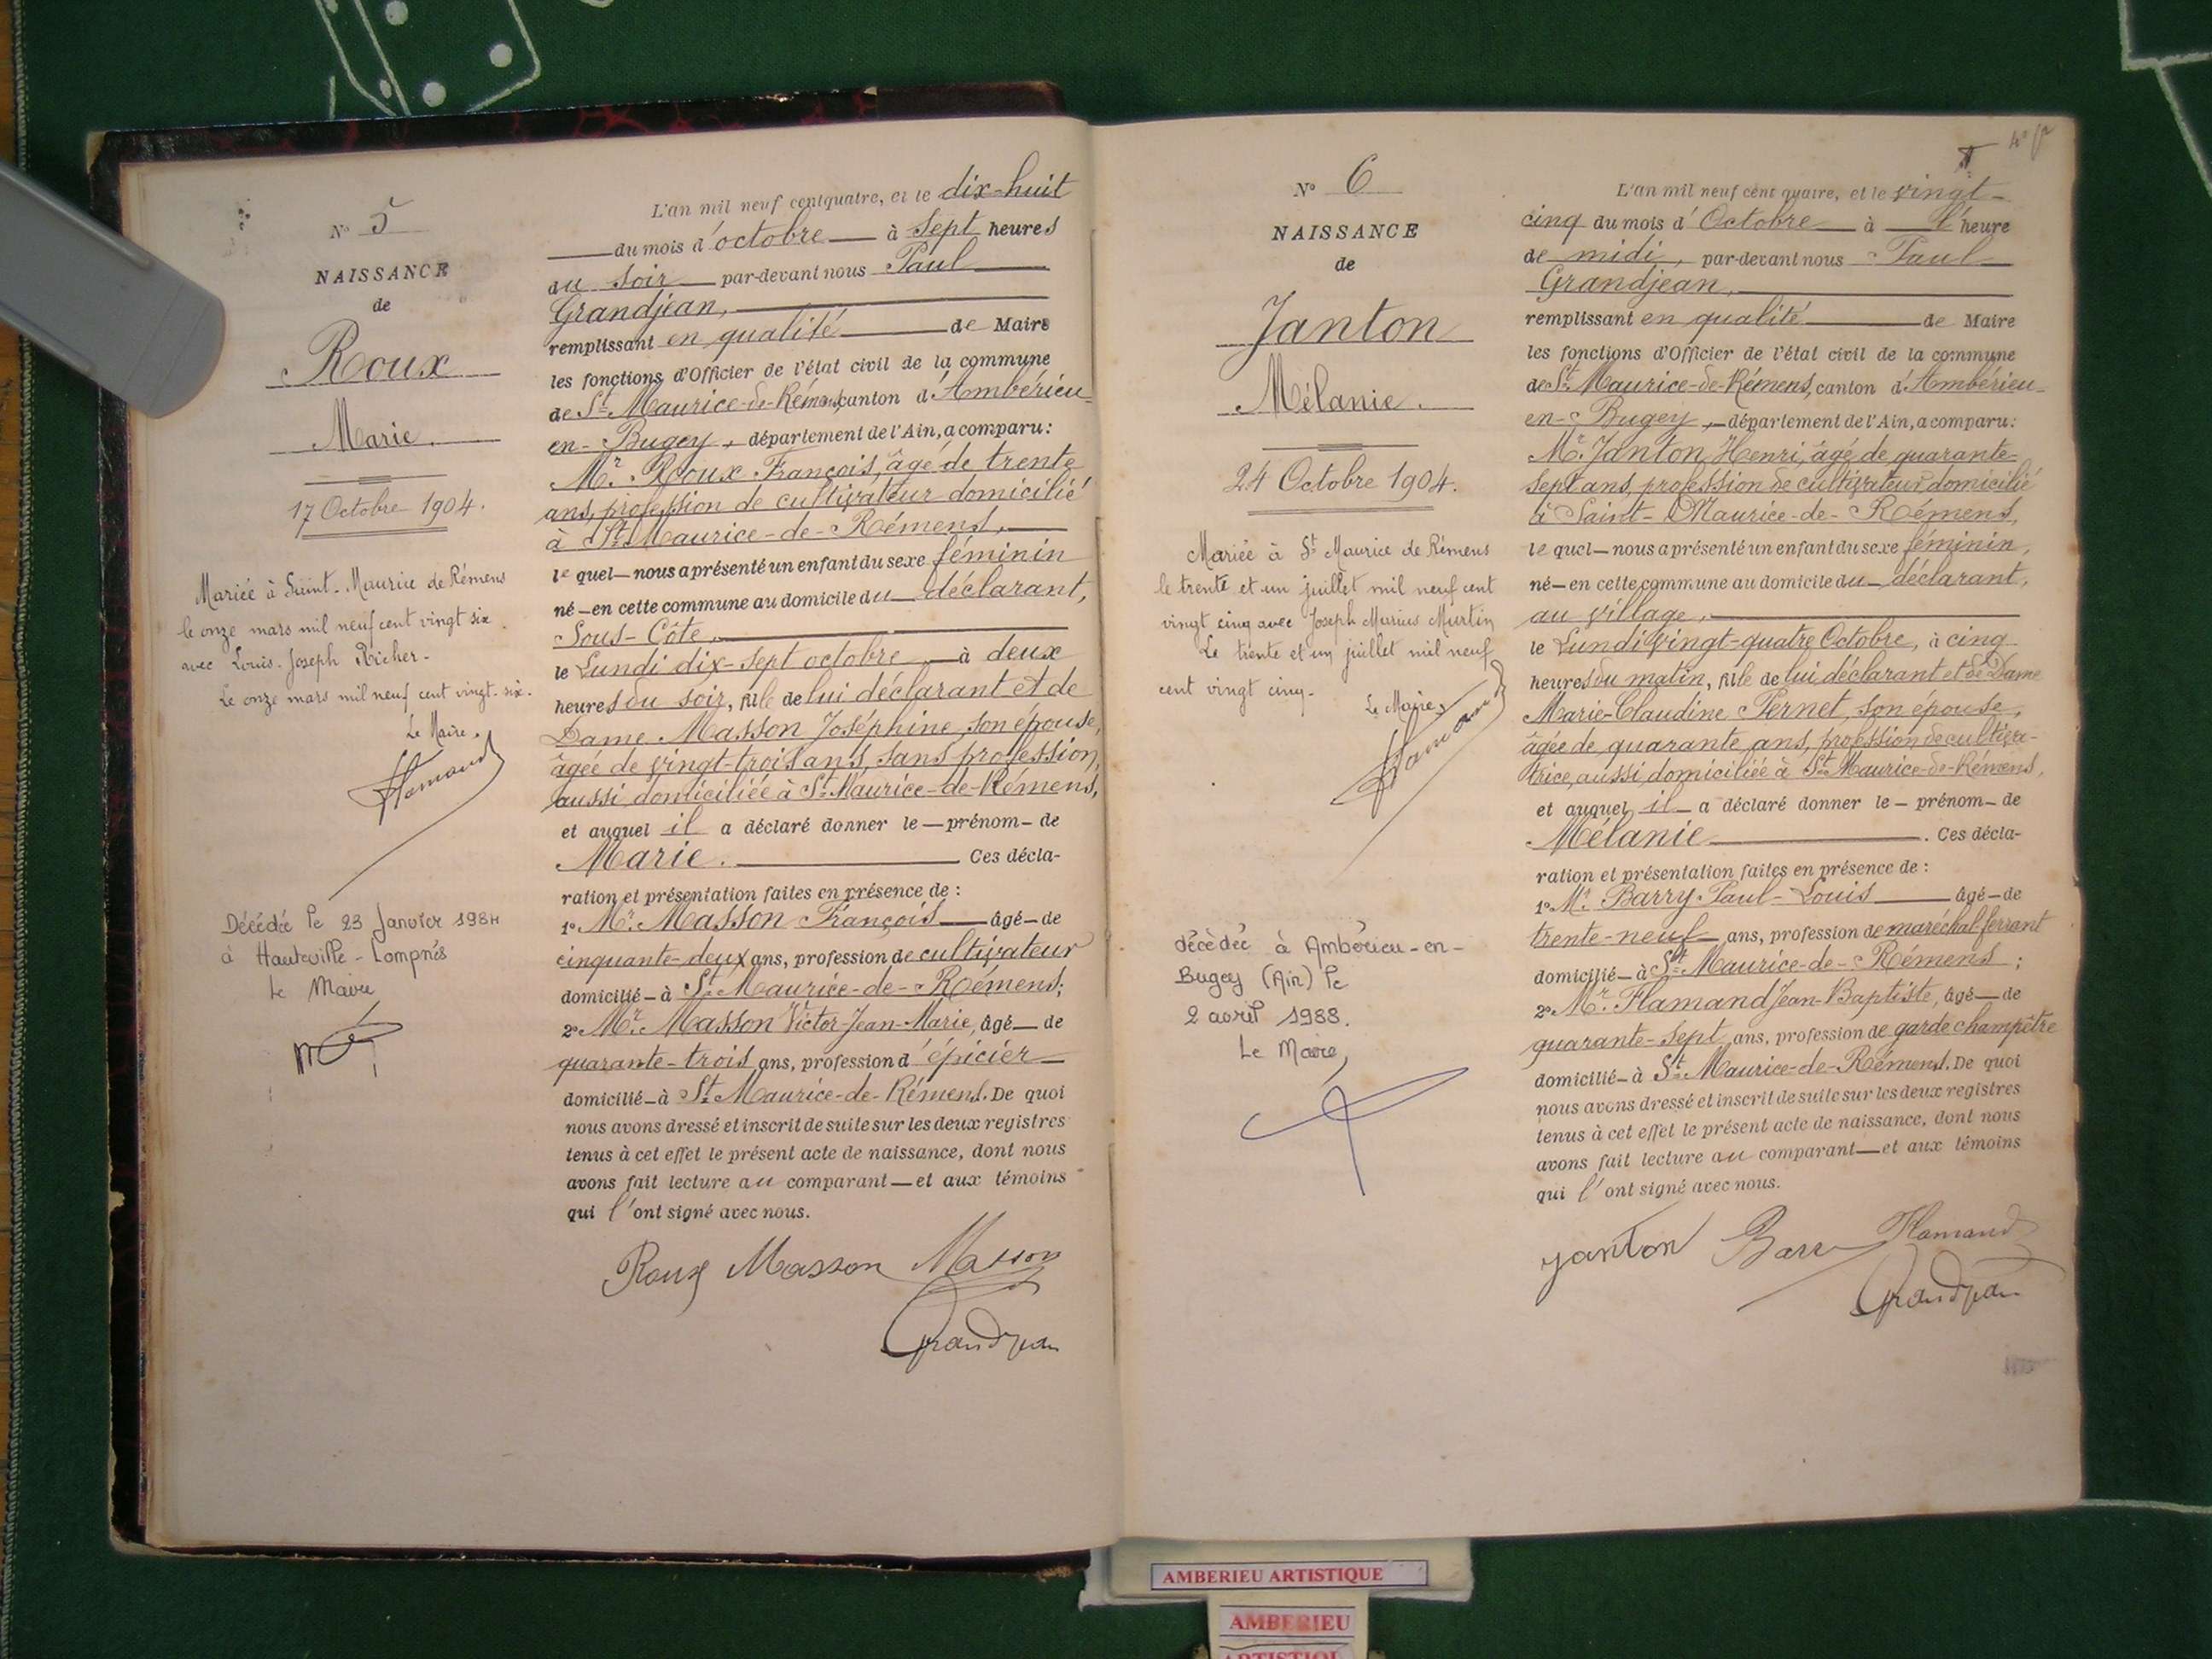 N° 5
NAISSANCE
de
Roux
Marie.
17 Octobre 1904.
Mariée à Saint-Maurice de Rémens
le onze mars mil neuf cent vingt six
avec Louis-Joseph Richer-
Le onze mars mil neuf cent vingt-six.
Le Maire,
Flamand
Décédée le 23 Janvier 1984
à Hauteville-Lompnès
Le Maire
L'an mil neuf cent quatre, et le dix-huit
du mois d'octobre à sept heures
du soir par-devant nous Paul
Grandjean,
remplissant en qualité de Maire
les fonctions d'Officier de l'état civil de la commune
de St Maurice-de-Rémens, canton d'Ambérieu-
en-Bugey, département de l'Ain, a comparu:
Mr Roux François, âgé de trente
ans, profession de cultivateur domicilié
à St Maurice-de-Rémens,
lequel nous a présenté un enfant du sexe féminin
né en cette commune au domicile du déclarant,
Sous-Côte,
le Lundi dix-sept octobre, à deux
heures du soir, fille de lui déclarant et de
Dame Masson Joséphine, son épouse,
âgée de vingt-trois ans, sans profession,
aussi domiciliée à St Maurice-de-Rémens,
et auquel il a déclaré donner le prénom de
Marie. Ces décla-
ration et présentation faites en présence de :
1° Mr. Masson François âgé de
cinquante-deux ans, profession de cultivateur
domicilié à St Maurice-de-Rémens;
2° Mr. Masson Victor-Jean-Marie, âgé de
quarante-trois ans, profession d'épicier
domicilié à St Maurice-de-Rémens. De quoi
nous avons dressé et inscrit de suite sur les deux registres
tenus à cet effet le présent acte de naissance, dont nous
avons fait lecture au comparant et aux témoins
qui l'ont signé avec nous.
Roux Masson Masson
Grandjean
N° 6
NAISSANCE
de
Janton
Mélanie.
24 Octobre 1904.
Mariée à St Maurice de Rémens
le trente et un juillet mil neuf cent
vingt cinq avec Joseph Marius Martin
Le trente et un juillet mil neuf
cent vingt cinq-
Le Maire,
Flamand
décédée à Ambérieu-en-
Bugey (Ain) le
2 avril 1988.
Le Maire,
L'an mil neuf cent quatre, et le vingt-
cinq du mois d'Octobre à l'heure
de midi, par-devant nous Paul
Grandjean,
remplissant en qualité de Maire
les fonctions d'Officier de l'état civil de la commune
de St Maurice-de-Rémens, canton d'Ambérieu-
en-Bugey, département de l'Ain, a comparu:
Mr. Janton Henri, âgé de quarante-
sept ans, profession de cultivateur domicilié
à Saint-Maurice-de-Rémens,
lequel nous a présenté un enfant du sexe féminin,
né en cette commune au domicile du déclarant,
au village,
le Lundi vingt-quatre Octobre, à cinq
heures du matin, fille de lui déclarant et de Dame
Marie-Claudine Pernet, son épouse,
âgée de quarante ans, profession de cultiva-
trice, aussi domiciliée à St Maurice-de-Rémens,
et auquel il a déclaré donner le prénom de
Mélanie. Ces décla-
ration et présentation faites en présence de :
1° Mr. Barry Paul-Louis âgé de
trente-neuf ans, profession de maréchal-ferrant
domicilié à St Maurice-de-Rémens;
2° Mr. Flamand Jean-Baptiste, âgé de
quarante-sept ans, profession de garde champêtre
domicilié à St Maurice-de-Rémens. De quoi
nous avons dressé et inscrit de suite sur les deux registres
tenus à cet effet le présent acte de naissance, dont nous
avons fait lecture au comparant et aux témoins
qui l'ont signé avec nous.
Janton Barry Flamand
Grandjean
AMBERIEU ARTISTIQUE
AMBERIEU